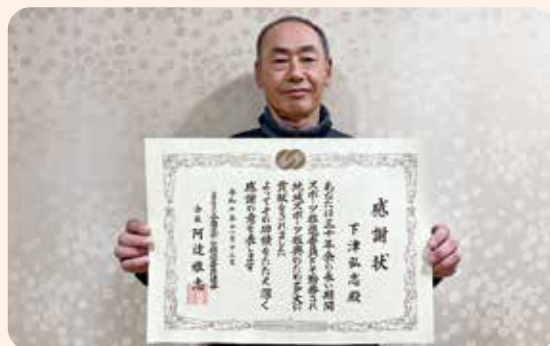 感謝状
下津弘志殿
あなたは三十年余の長い期間
スポーツ推進委員として勤務され
地域スポーツ振興のため多大な
貢献をされました
よってその功績をたたえ深く
感謝の意を表します
会長